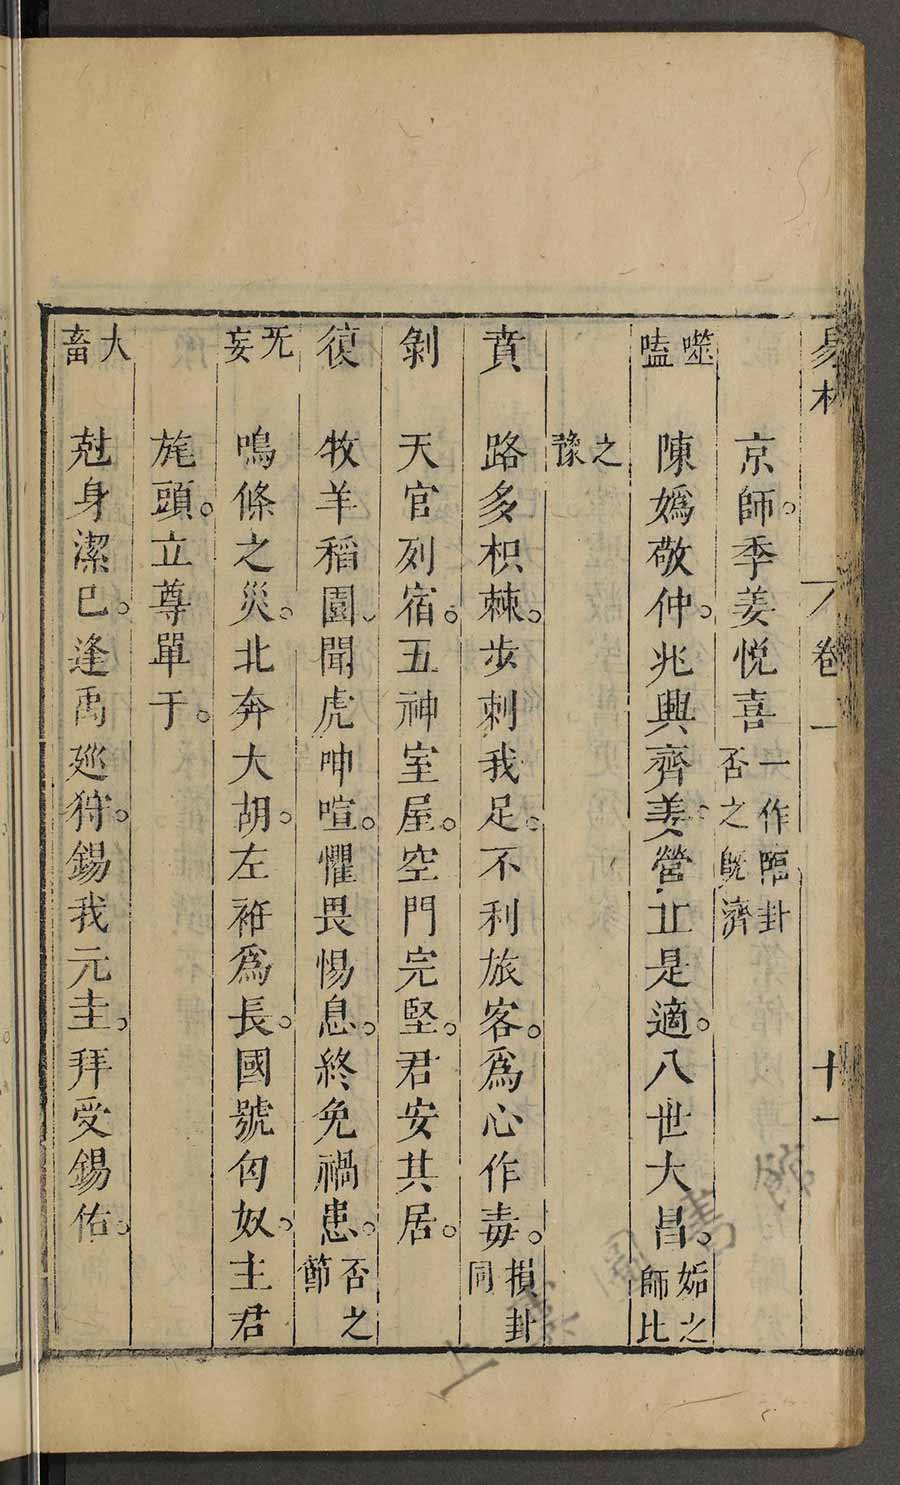 易林 卷一 十一
京師。季姜悦喜 一作臨卦否之旣濟
噬嗑 陳嬀敬仲。兆興齊姜。營丘是適。八世大昌。 姤之師比
之豫
賁 路多枳棘。步刺我足。不利旅客。爲心作毒。 損卦同
剝 天官列宿。五神室屋。空門完堅。君安其居。
復 牧羊稻園、聞虎呻喧。懼畏惕息。終免禍患。 否之節
无妄 鳴條之災。北奔大胡。左袵爲長。國號匈奴。主君
旄頭。立尊單于。
大畜 尅身潔己。逢禹巡狩。錫我元圭。拜受錫佑。